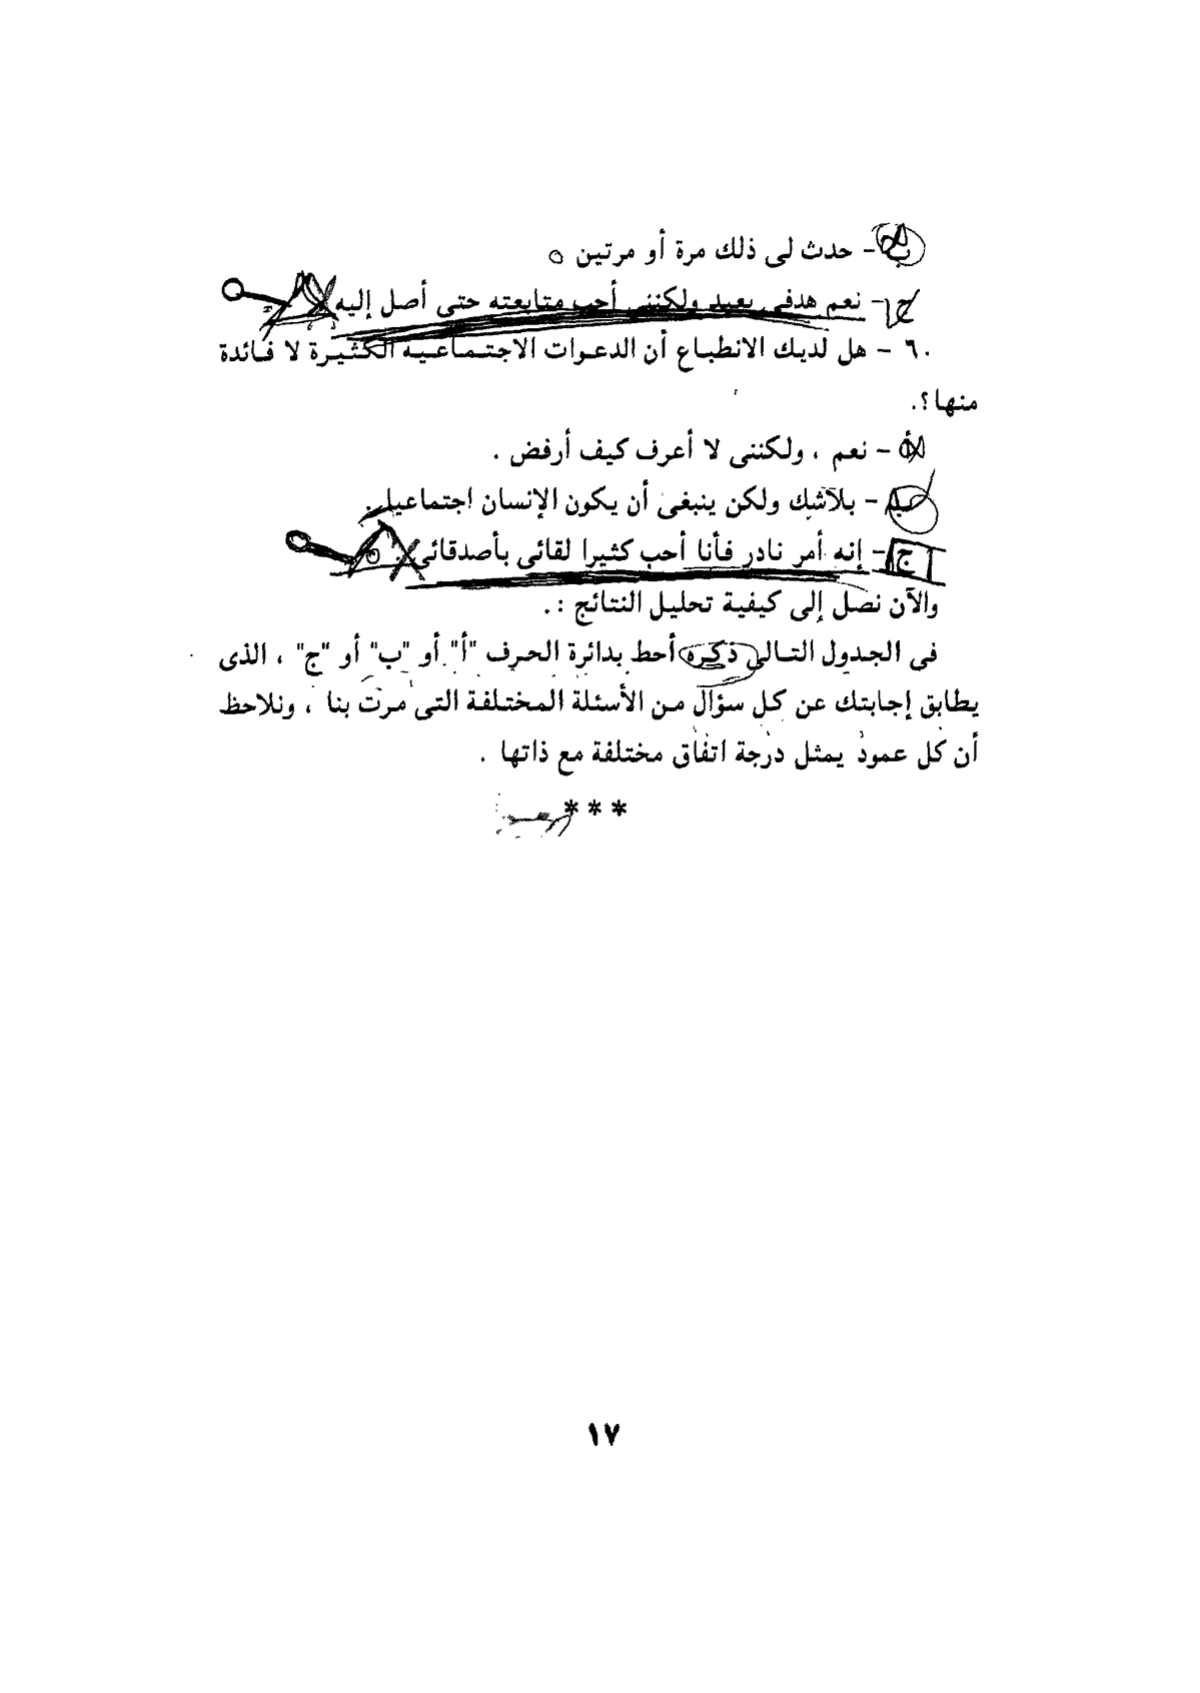 ب - حدث لى ذلك مرة أو مرتين
ج - نعم هدفى بعيد ولكننى أحب متابعته حتى أصل إليه
٦٠ - هل لديك الانطباع أن الدعوات الاجتماعية الكثيرة لا فائدة
منها؟.
أ - نعم ، ولكننى لا أعرف كيف أرفض .
ب - بلاشك ولكن ينبغى أن يكون الإنسان اجتماعيا .
ج - إنه أمر نادر فأنا أحب كثيرا لقائى بأصدقائى .
والآن نصل إلى كيفية تحليل النتائج : .
فى الجدول التالى ذكره أحط بدائرة الحرف "أ" أو "ب" أو "ج" ، الذى
يطابق إجابتك عن كل سؤال من الأسئلة المختلفة التى مرت بنا ، ونلاحظ
أن كل عمود يمثل درجة اتفاق مختلفة مع ذاتها .
***
١٧